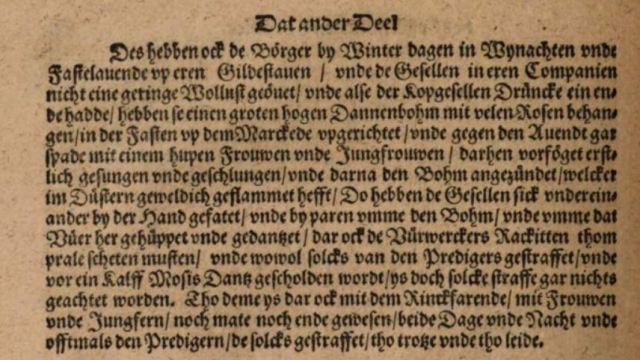 Dat ander Deel
Des hebben ock de Börger by Winter dagen in Wynachten vnde
Fastelauende vp eren Gildestauen / vnde de Gesellen in eren Companien
nicht eine geringe Wollust geöuet / vnde alse der Kopgesellen Drüncke ein en-
de hadde / hebben se einen groten hogen Dannenbohm mit velen Rosen behan-
gen / in der Fasten vp dem Marckede vpgerichtet / vnde gegen den Auendt gar
spade mit einem hupen Frouwen vnde Jungfrouwen / darhen vorföget erst-
lich gesungen vnde geschlungen / vnde darna den Bohm angezündet / welcker
im Düstern geweldich geflammet hefft / Do hebben de Gesellen sick vnderein-
ander by der Hand gefatet / vnde by paren vmme den Bohm / vnde vmme dat
Vüer her gehüppet vnde gedantzet / dar ock de Vürwerckers Rackitten thom
prale scheten musten / vnde wowol solcks van den Predigers gestraffet / vnde
vor ein Kalff Mosis Dantz gescholden wordt / ys doch solcke straffe gar nichts
geachtet worden. Tho deme ys dar ock mit dem Rinckfarende / mit Frouwen
vnde Jungfern / noch mate noch ende gewesen / beide Dage vnde Nacht vnde
offtmals den Predigern / de solcks gestraffet / tho trotze vnde tho leide.